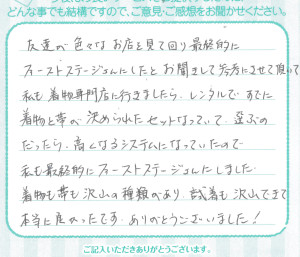 どんな事でも結構ですので、ご意見・ご感想をお聞かせください。
友達の色々なお店を見て回り最終的に
ファーストステージさんにしたとお聞きして参考にさせて頂いて
私も着物専門店に行きましたら、レンタルですでに
着物と帯の決められたセットになっていて、選ぶの
だったら、高くなるシステムになっていたので
私も最終的にファーストステージさんにしました。
着物も帯も沢山の種類があり、試着も沢山できて
本当に良かったです。ありがとうございました！
ご記入いただきありがとうございます。